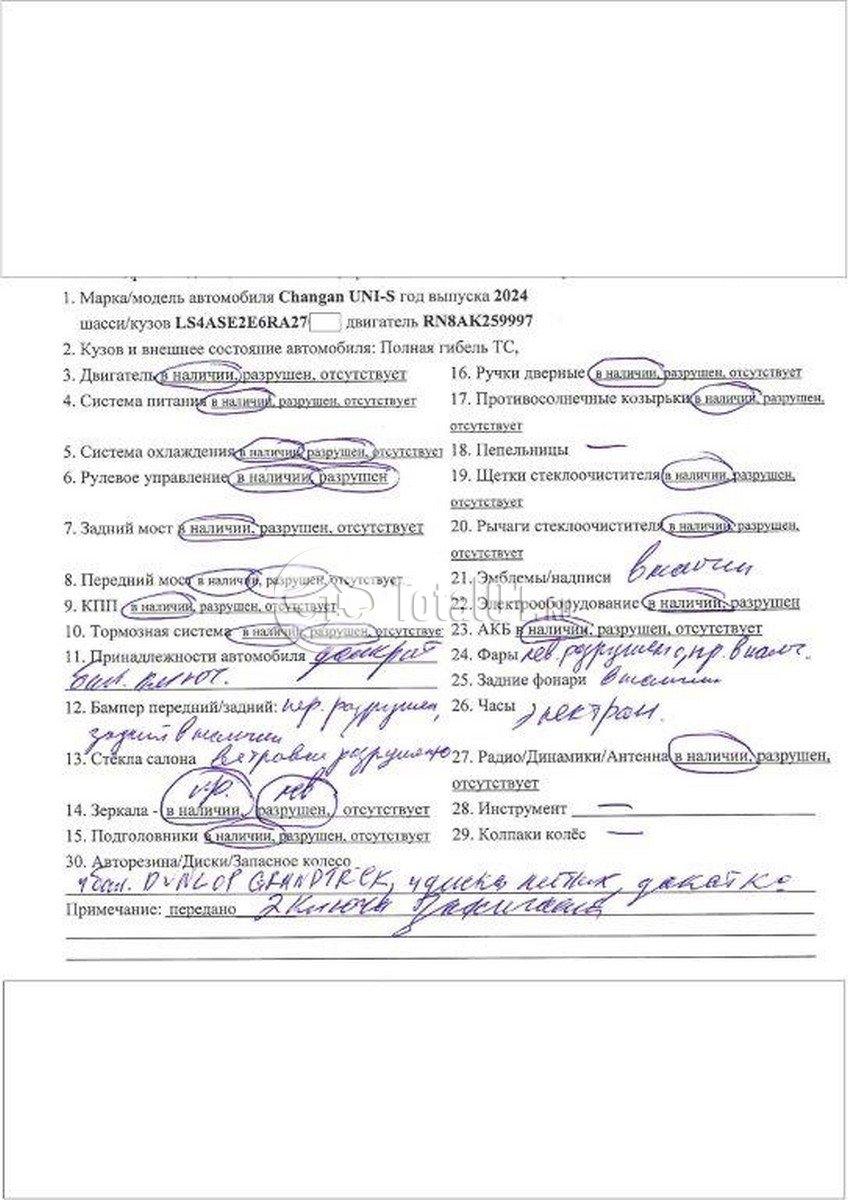 1. Марка/модель автомобиля Changan UNI-S год выпуска 2024
шасси/кузов LS4ASE2E6RA27 двигатель RN8AK259997
2. Кузов и внешнее состояние автомобиля: Полная гибель ТС,
3. Двигатель в наличии, разрушен, отсутствует
4. Система питания в наличии, разрушен, отсутствует
5. Система охлаждения в наличии, разрушен, отсутствует
6. Рулевое управление в наличии, разрушен
7. Задний мост в наличии, разрушен, отсутствует
8. Передний мост в наличии, разрушен, отсутствует
9. КПП в наличии, разрушен, отсутствует
10. Тормозная система в наличии, разрушен, отсутствует
11. Принадлежности автомобиля домкрат
бал. ключ.
12. Бампер передний/задний: пер. разрушен,
задний в наличии
13. Стёкла салона ветровое разрушено
пр. лев.
14. Зеркала - в наличии, разрушен, отсутствует
15. Подголовники в наличии, разрушен, отсутствует
16. Ручки дверные в наличии, разрушен, отсутствует
17. Противосолнечные козырьки в наличии, разрушен,
отсутствует
18. Пепельницы —
19. Щетки стеклоочистителя в наличии, разрушен,
отсутствует
20. Рычаги стеклоочистителя в наличии, разрушен,
отсутствует
21. Эмблемы/надписи в наличии
22. Электрооборудование в наличии, разрушен
23. АКБ в наличии, разрушен, отсутствует
24. Фары лев. разрушена, пр. в налич.
25. Задние фонари в наличии
26. Часы электрон.
27. Радио/Динамики/Антенна в наличии, разрушен,
отсутствует
28. Инструмент —
29. Колпаки колёс —
30. Авторезина/Диски/Запасное колесо
4 бал. DUNLOP GRANDTREK, 4 диска литых, докатка
Примечание: передано 2 ключа зажигания
Total01.ru